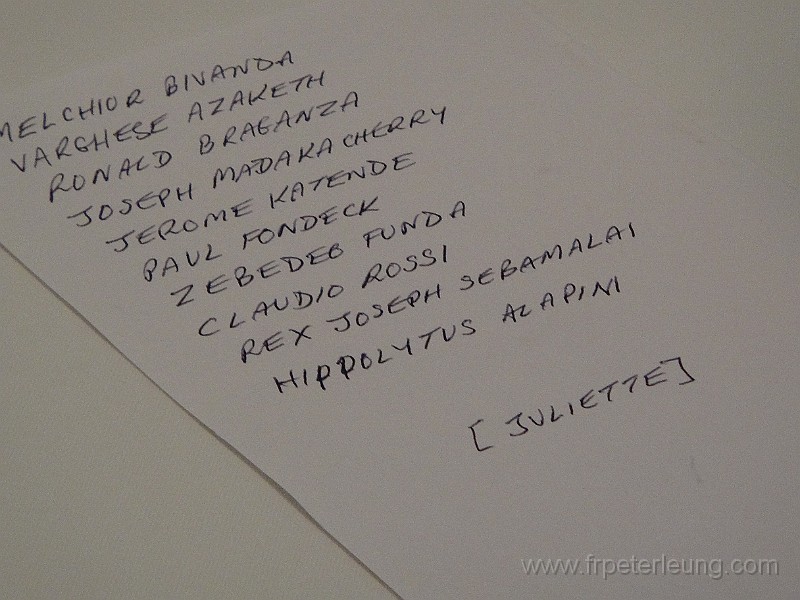 MELCHIOR BIVANDA
VARGHESE AZAKETH
RONALD BRAGANZA
JOSEPH MADAKACHERRY
JEROME KATENDE
PAUL FONDECK
ZEBEDEO FUNDA
CLAUDIO ROSSI
REX JOSEPH SEBAMALAI
HIPPOLYTUS ALAPINI
[JULIETTE]
www.frpeterleung.com